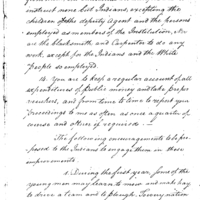 instruct none but Indians, excepting the
children of the deputy Agent and the persons
employed as members of the Institution, Nor
are the blacksmith and Carpenter to do any
work, except for the Indians and the White
People so employed.
14. You are to keep a regular account of all
expenditures of public money and take proper
vouchers, and from time to time to report your
Proceedings to me as often as once a quarter of
course and oftener if required.
The following encouragements to be pro-
posed to the Indians to engage them in these
improvements.
1. During the first year, some of the
young men may learn to mow and make hay
to drive a team and to plough. Every nation